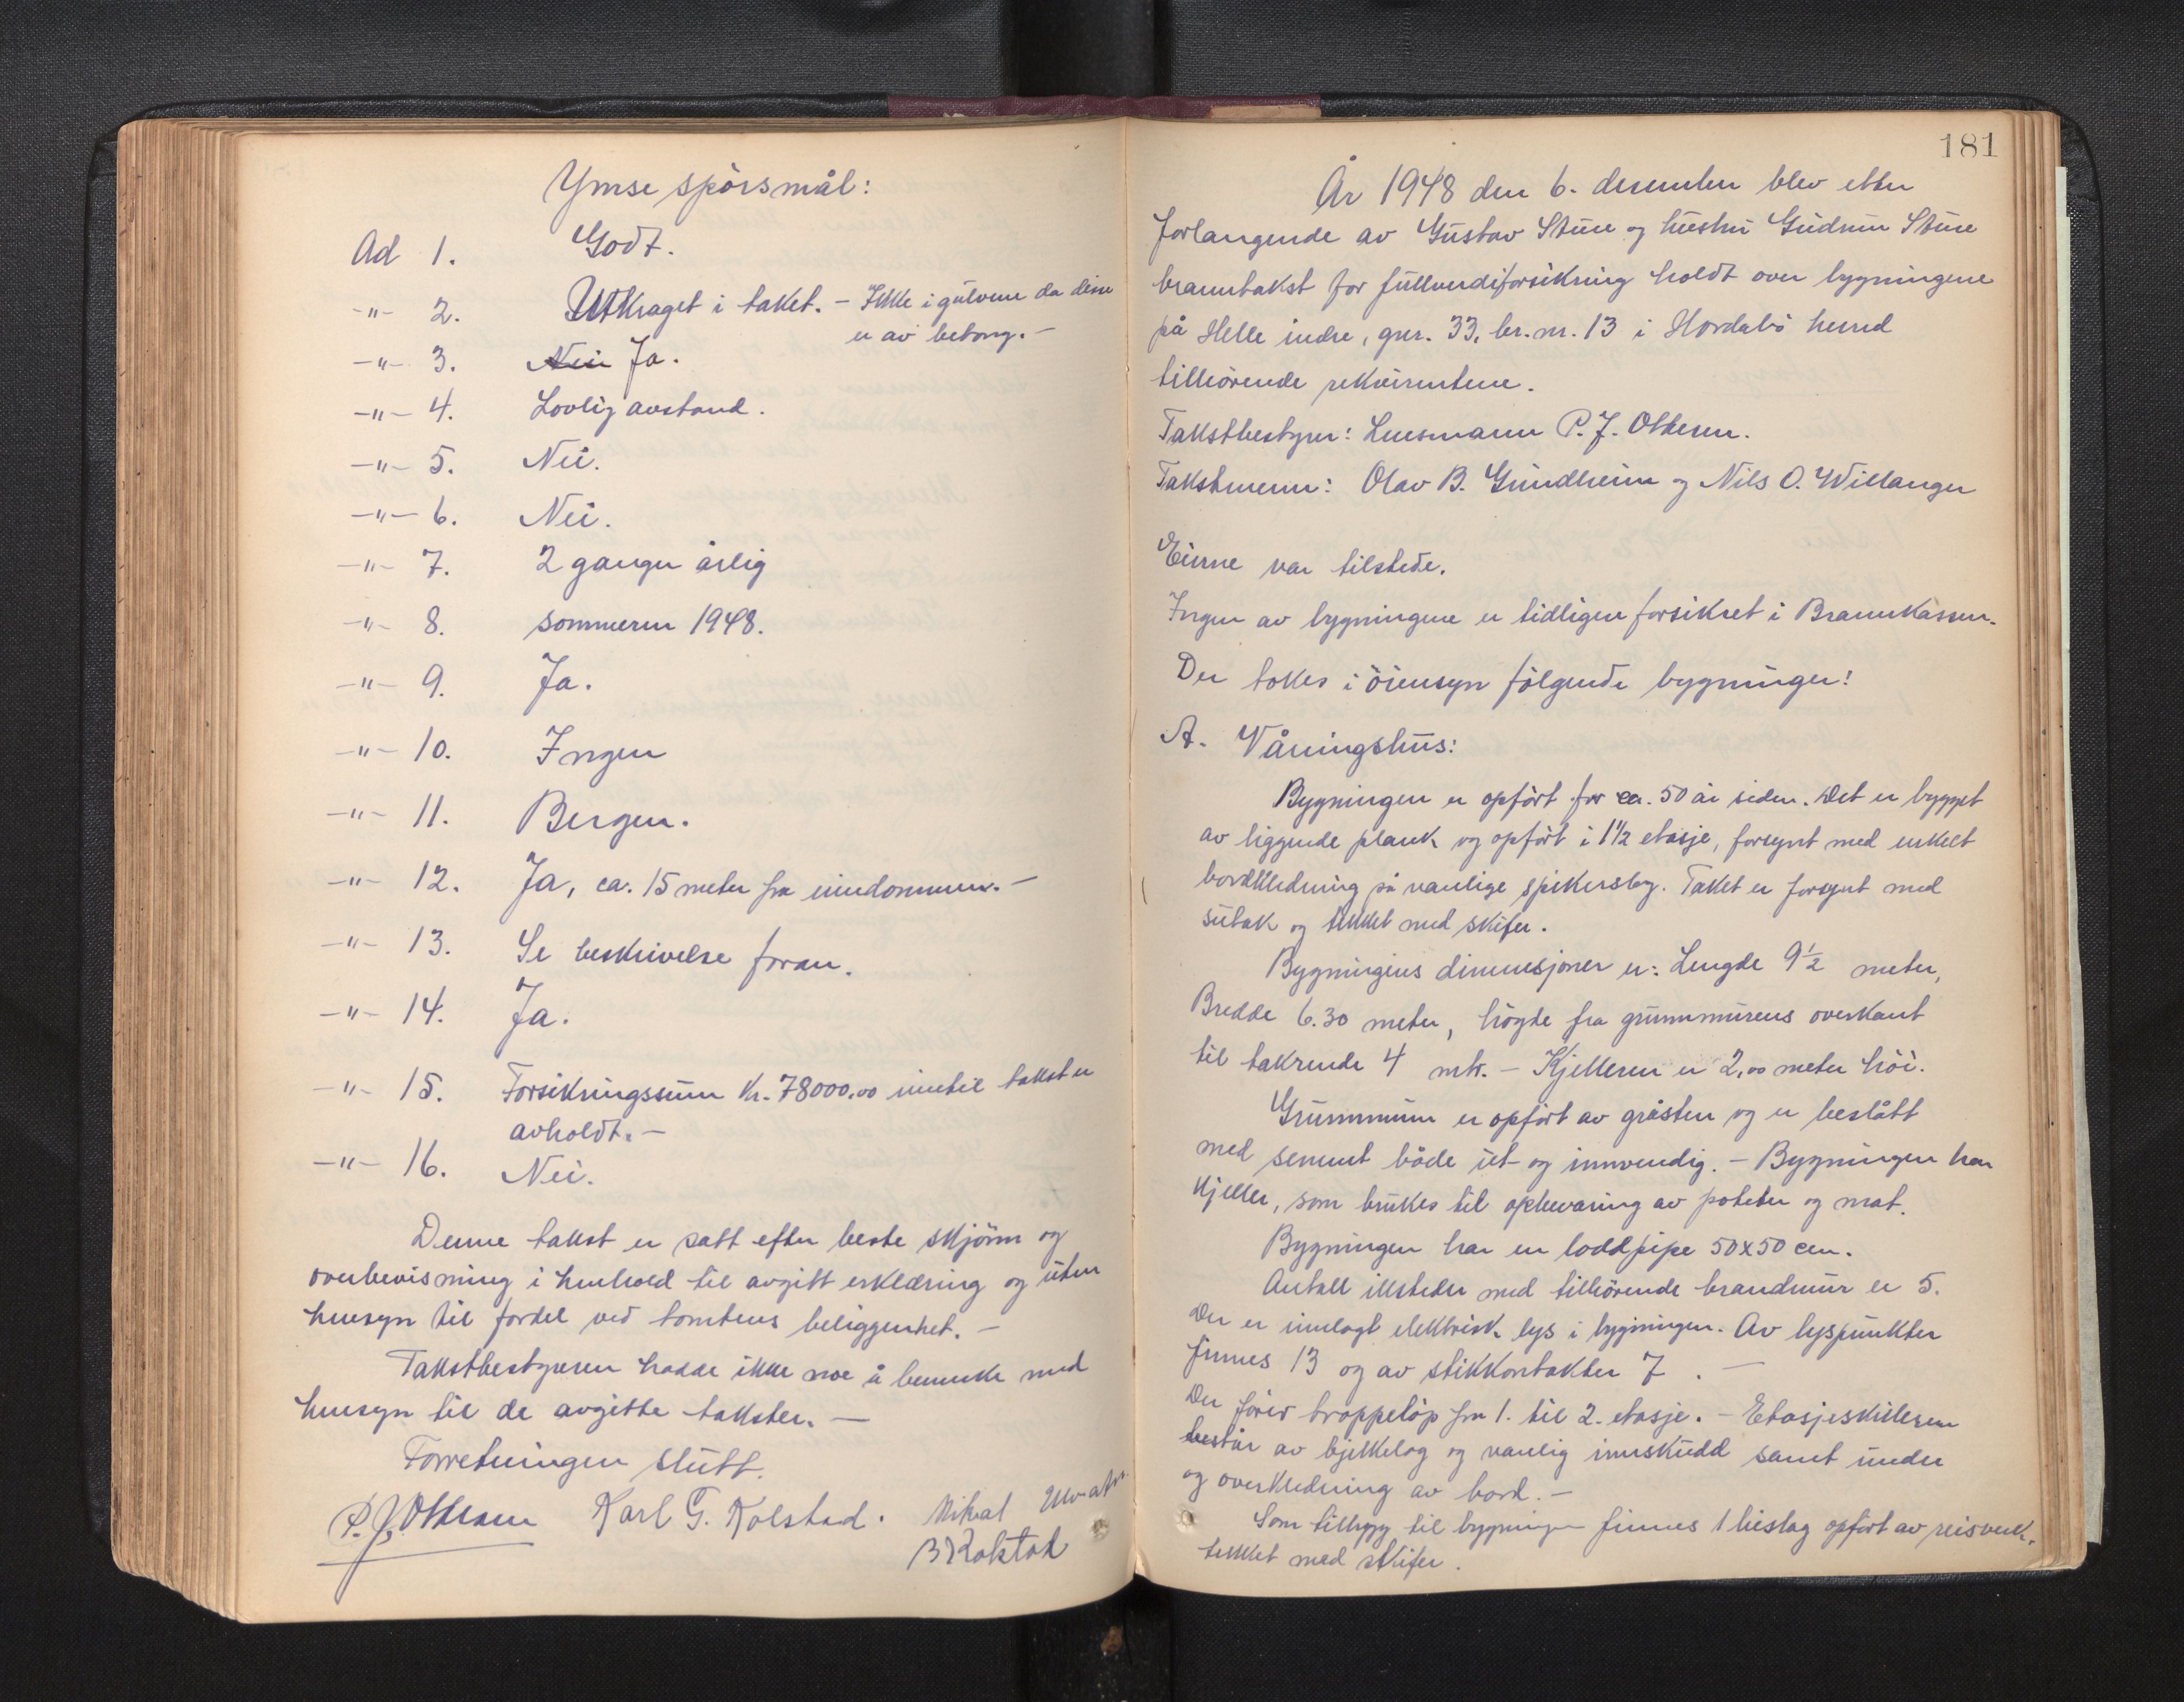 Ymse spörsmål:
Ad 1. Godt.
-"- 2. Utkraget i taket. – Ikke i gulvene da disse
er av betong. –
-"- 3. Nei Ja.
-"- 4. Lovlig avstand.
-"- 5. Nei.
-"- 6. Nei.
-"- 7. 2 ganger årlig
-"- 8. sommeren 1948.
-"- 9. Ja.
-"- 10. Ingen
-"- 11. Bergen.
-"- 12. Ja, ca. 15 meter fra eiendommen. –
-"- 13. Se beskrivelse foran.
-"- 14. Ja.
-"- 15. Forsikringssum Kr. 78000,00 inntil takst er
avholdt. –
-"- 16. Nei.
Denne takst er satt efter beste skjönn og
overbevisning i henhold til avgitt erklæring og uten
hensyn til fordel ved tomtens beliggenhet. –
Takstbestyreren hadde ikke noe å bemerke med
hensyn til de avgitte takster. –
Forretningen slutt.
P. J. Ottesen Karl G. Kolstad. Mikal
B Kolstad
181
År 1948 den 6. desember blev etter
forlangende av Gustav Sture og hustru Gudrun Sture
branntakst for fullverdiforsikring holdt over bygningene
på Helle indre, gnr. 33, br. nr. 13 i Hordabö herred
tilhörende rekvirentene.
Takstbestyrer: Lensmann P. J. Ottesen.
Takstmenn: Olav B. Grindheim og Nils O. Willanger
Eierne var tilstede.
Ingen av bygningene er tidligere forsikret i Brannkassen.
Der tokes i öiensyn fölgende bygninger:
A. Våningshus:
Bygningen er opfört for ca. 50 år siden. Det er bygget
av liggende plank og opfört i 1 1/2 etasje, forsynt med enkelt
bordkledning på vanlige spikerslag. Taket er forsynt med
sutak og tekket med skifer.
Bygningens dimensjoner er: Lengde 9 1/2 meter,
Bredde 6.30 meter, högde fra grunnmurens overkant
til takrende 4 mtr. – Kjelleren er 2,00 meter höi.
Grunnmuren er opfört av gråsten og er beslått
med sement både ut- og innvendig. – Bygningen har
kjeller, som brukes til opbevaring av poteter og mat.
Bygningen har en loddpipe 50x50 cm.
Antall illsteder med tilhörende brandmur er 5.
Der er innlagt elektrisk lys i bygningen. Av lyspunkter
finnes 13 og av stikkontakter 7. –
Der förer trappelöp fra 1. til 2. etasje. – Etasjeskilleren
består av bjelkelag og vanlig innskudd samt under
og overkledning av bord. –
Som tilbygg til bygningen finnes 1 bislag opfört av reisverk.
tekket med skifer.